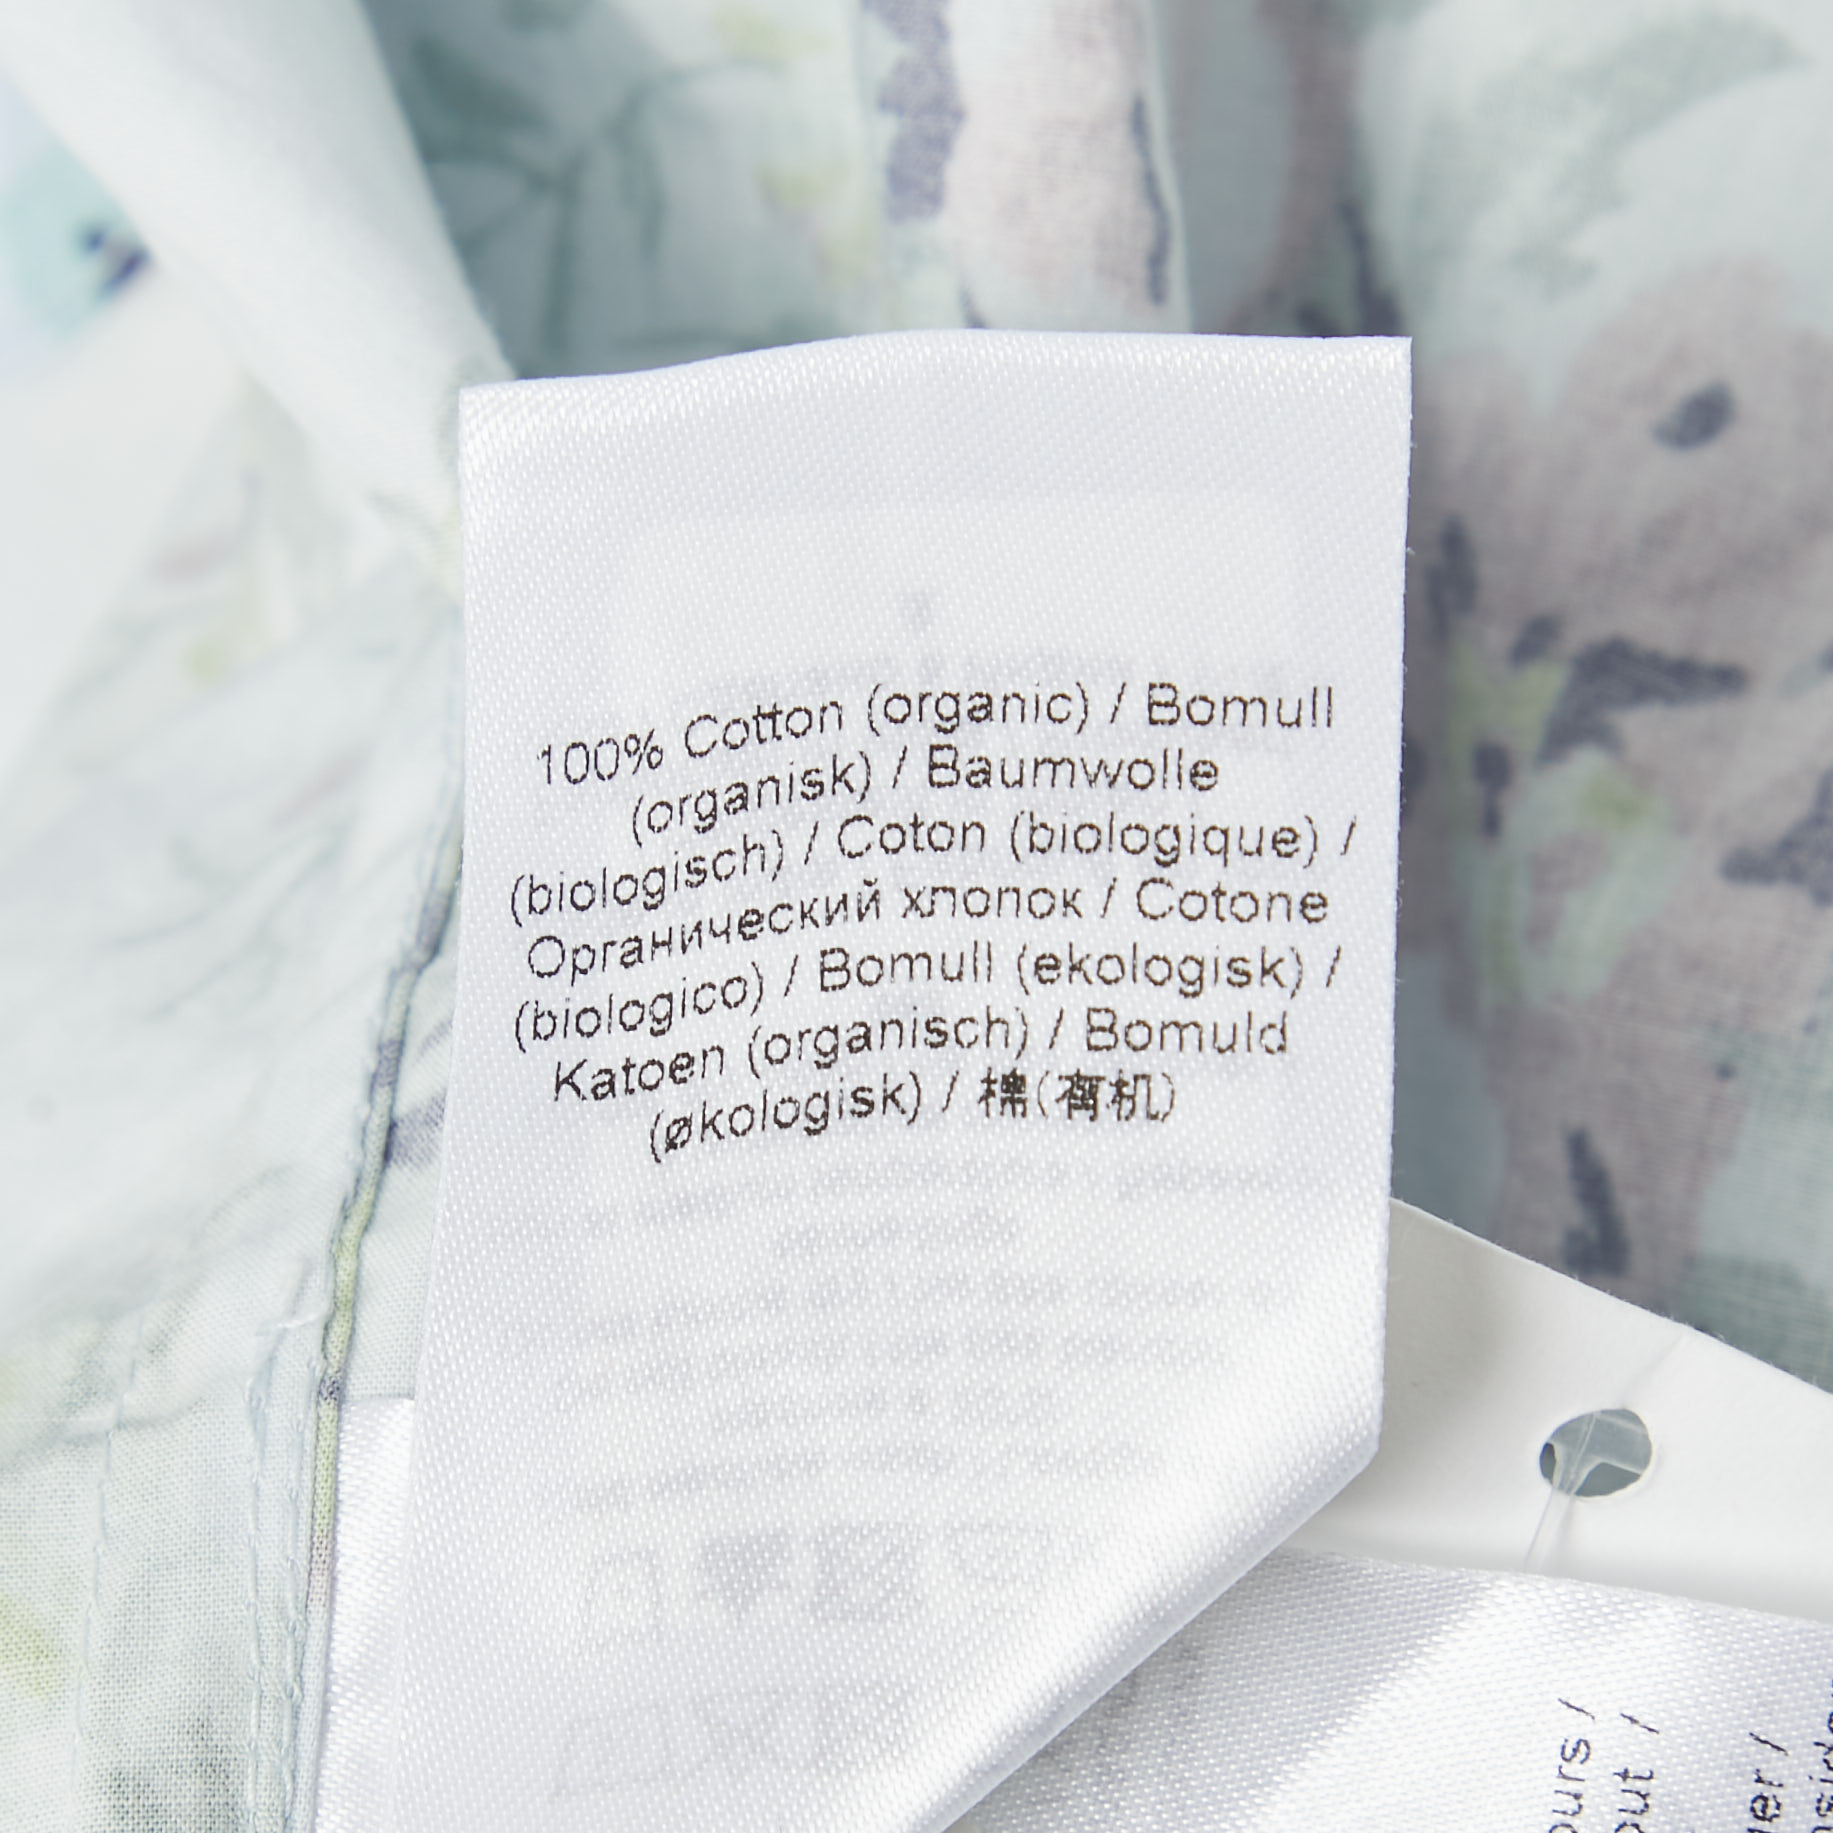 100% Cotton (organic) / Bomull
(organisk) / Baumwolle
(biologisch) / Coton (biologique) /
Органический хлопок / Cotone
(biologico) / Bomull (ekologisk) /
Katoen (organisch) / Bomuld
(økologisk) / 棉(有机)